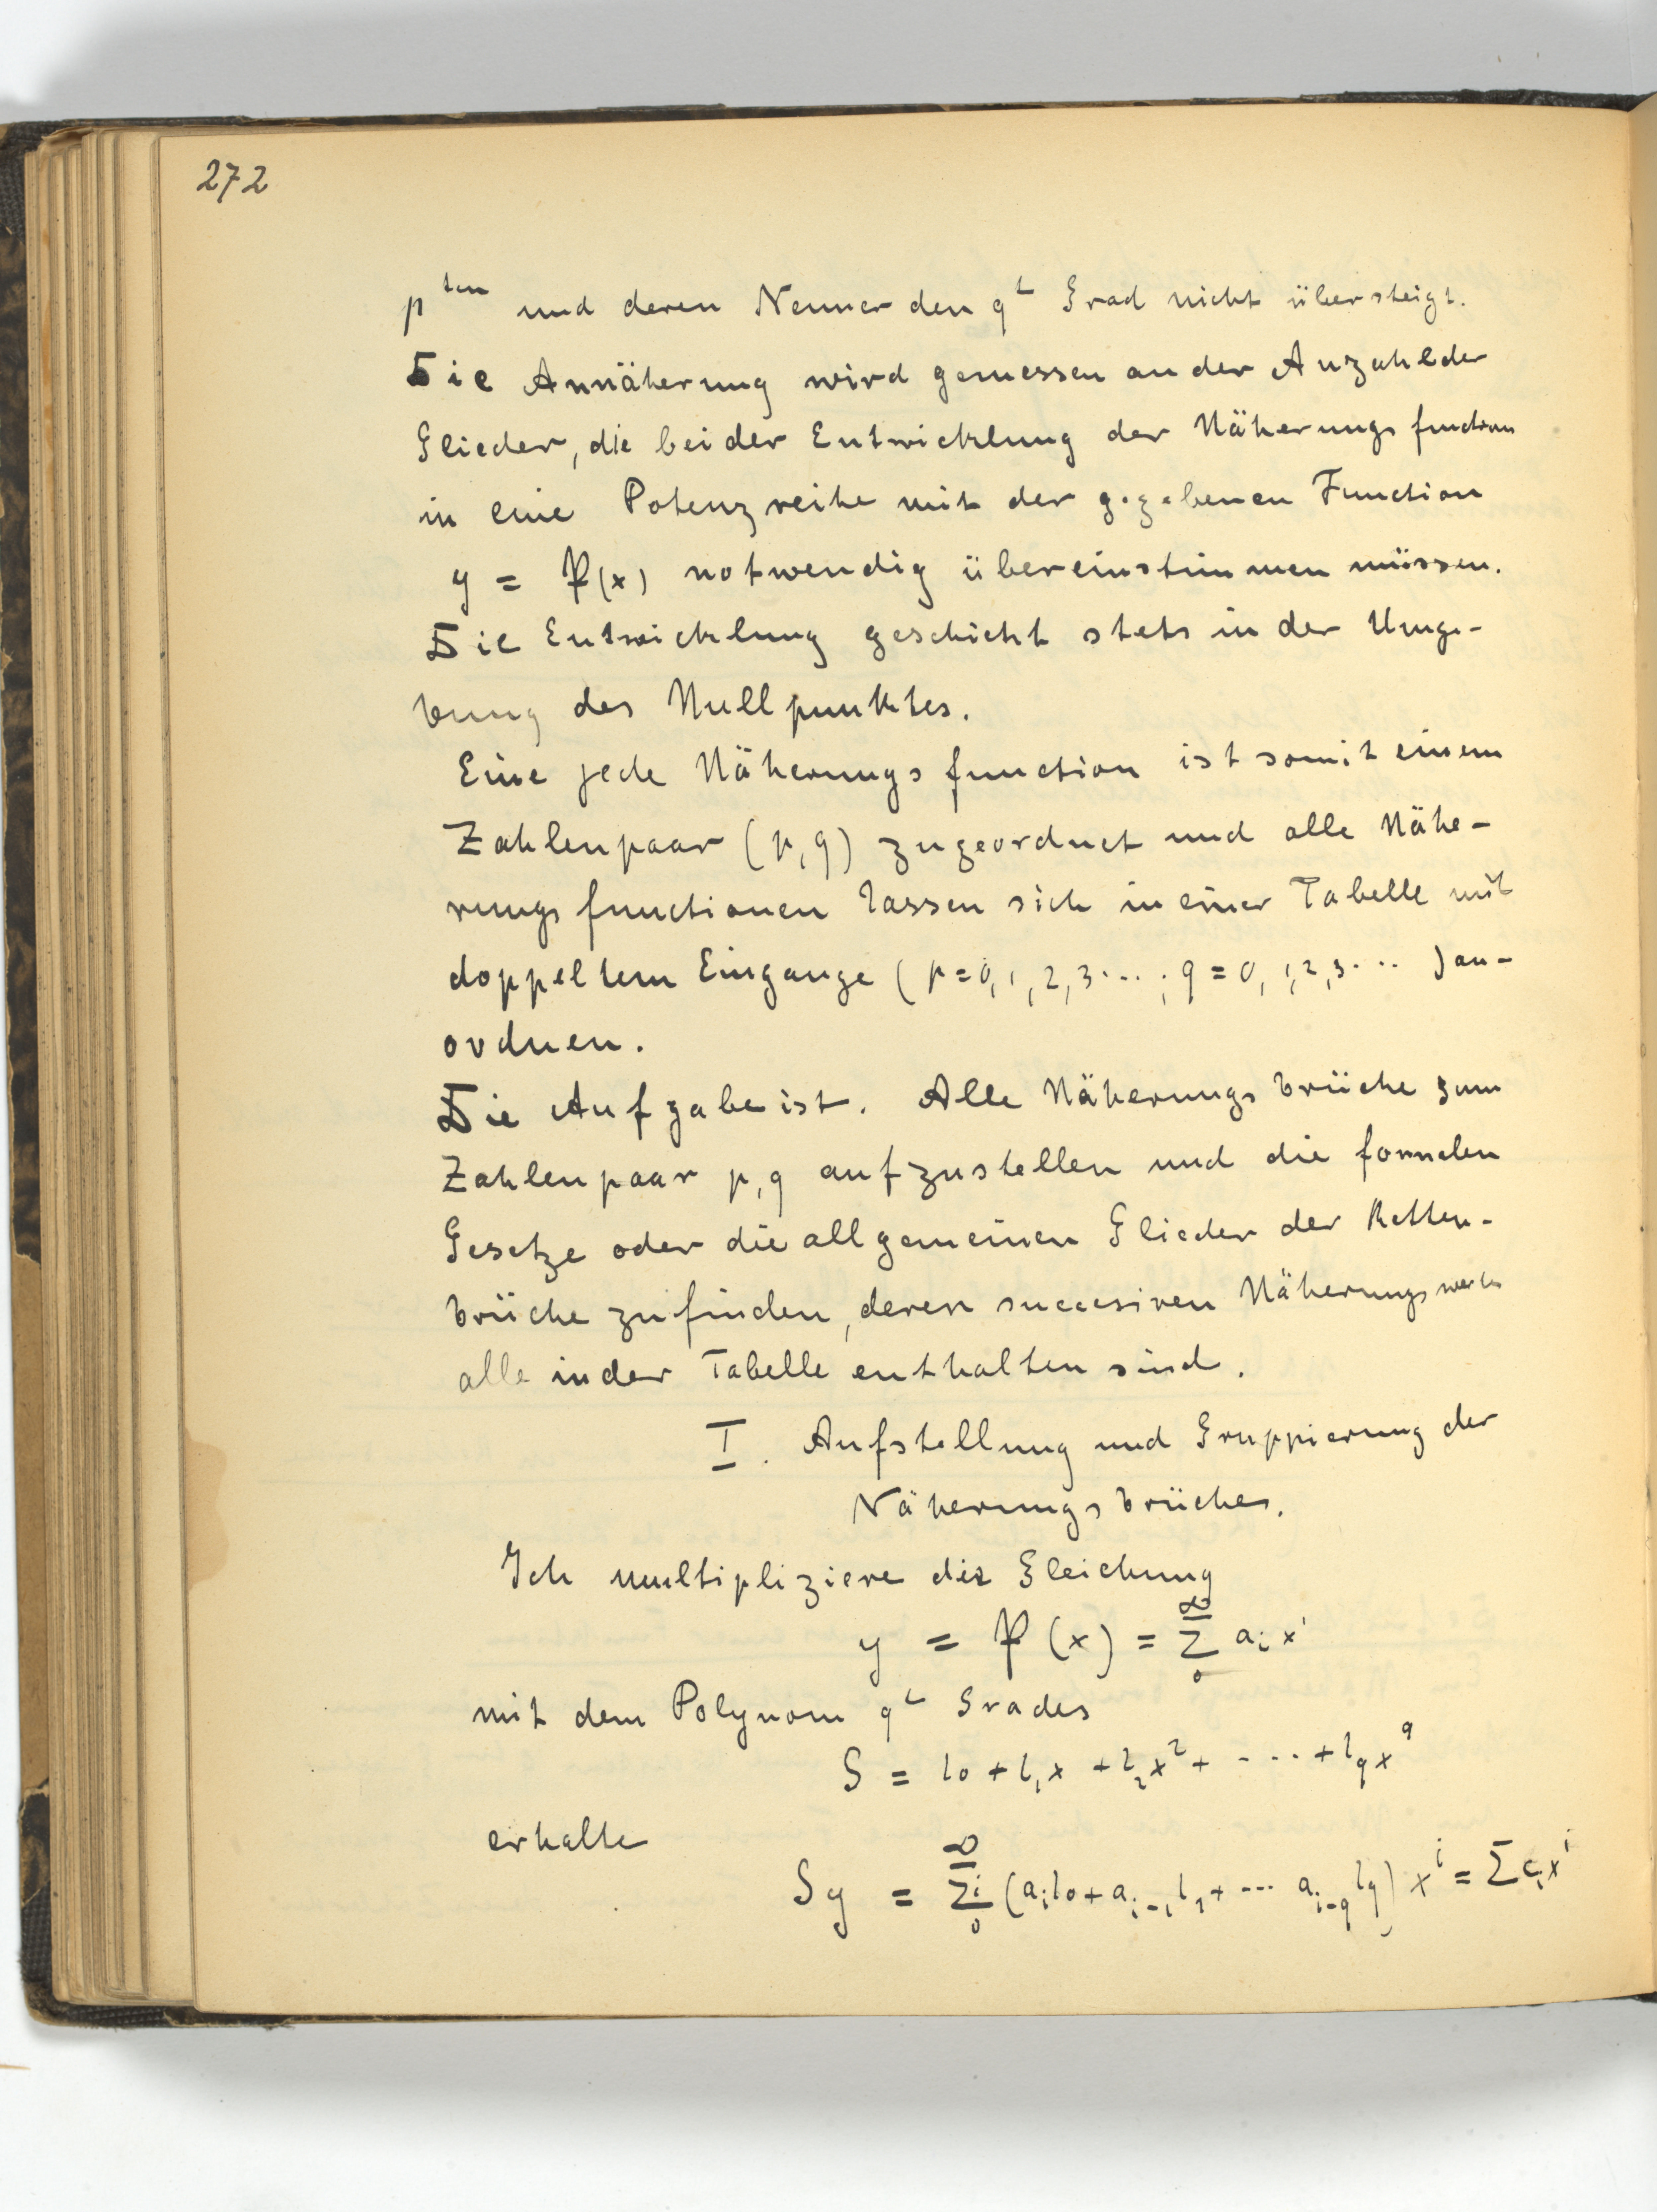 272
p ten und deren Nenner den q t Grad nicht übersteigt.
Die Annäherung wird gemessen an der Anzahl der
Glieder, die bei der Entwicklung der Näherungsfunction
in eine Potenzreihe mit der gegebenen Function
y = P(x) notwendig übereinstimmen müssen.
Die Entwicklung geschieht stets in der Umge-
bung des Nullpunktes.
Eine jede Näherungsfunction ist somit einem
Zahlenpaar (p, q) zugeordnet und alle Nähe-
rungsfunctionen lassen sich in einer Tabelle mit
doppeltem Eingange (p = 0, 1, 2, 3 ... ; q = 0, 1, 2, 3 ... ) an-
ordnen.
Die Aufgabe ist. Alle Näherungsbrüche zum
Zahlenpaar p, q aufzustellen und die formalen
Gesetze oder die allgemeinen Glieder der Ketten-
brüche zu finden, deren succesiven Näherungswerte
alle in der Tabelle enthalten sind.
I. Aufstellung und Gruppierung der
Näherungsbrüche.
Ich multipliziere die Gleichung
y = P(x) = ∞ Σ 0 a_i x^i
mit dem Polynom q t Grades
S = l_0 + l_1 x + l_2 x^2 + ... + l_q x^q
erhalte
Sy = ∞ Σ i 0 (a_i l_0 + a_{i-1} l_1 + ... a_{i-q} l_q) x^i = Σ c_i x^i